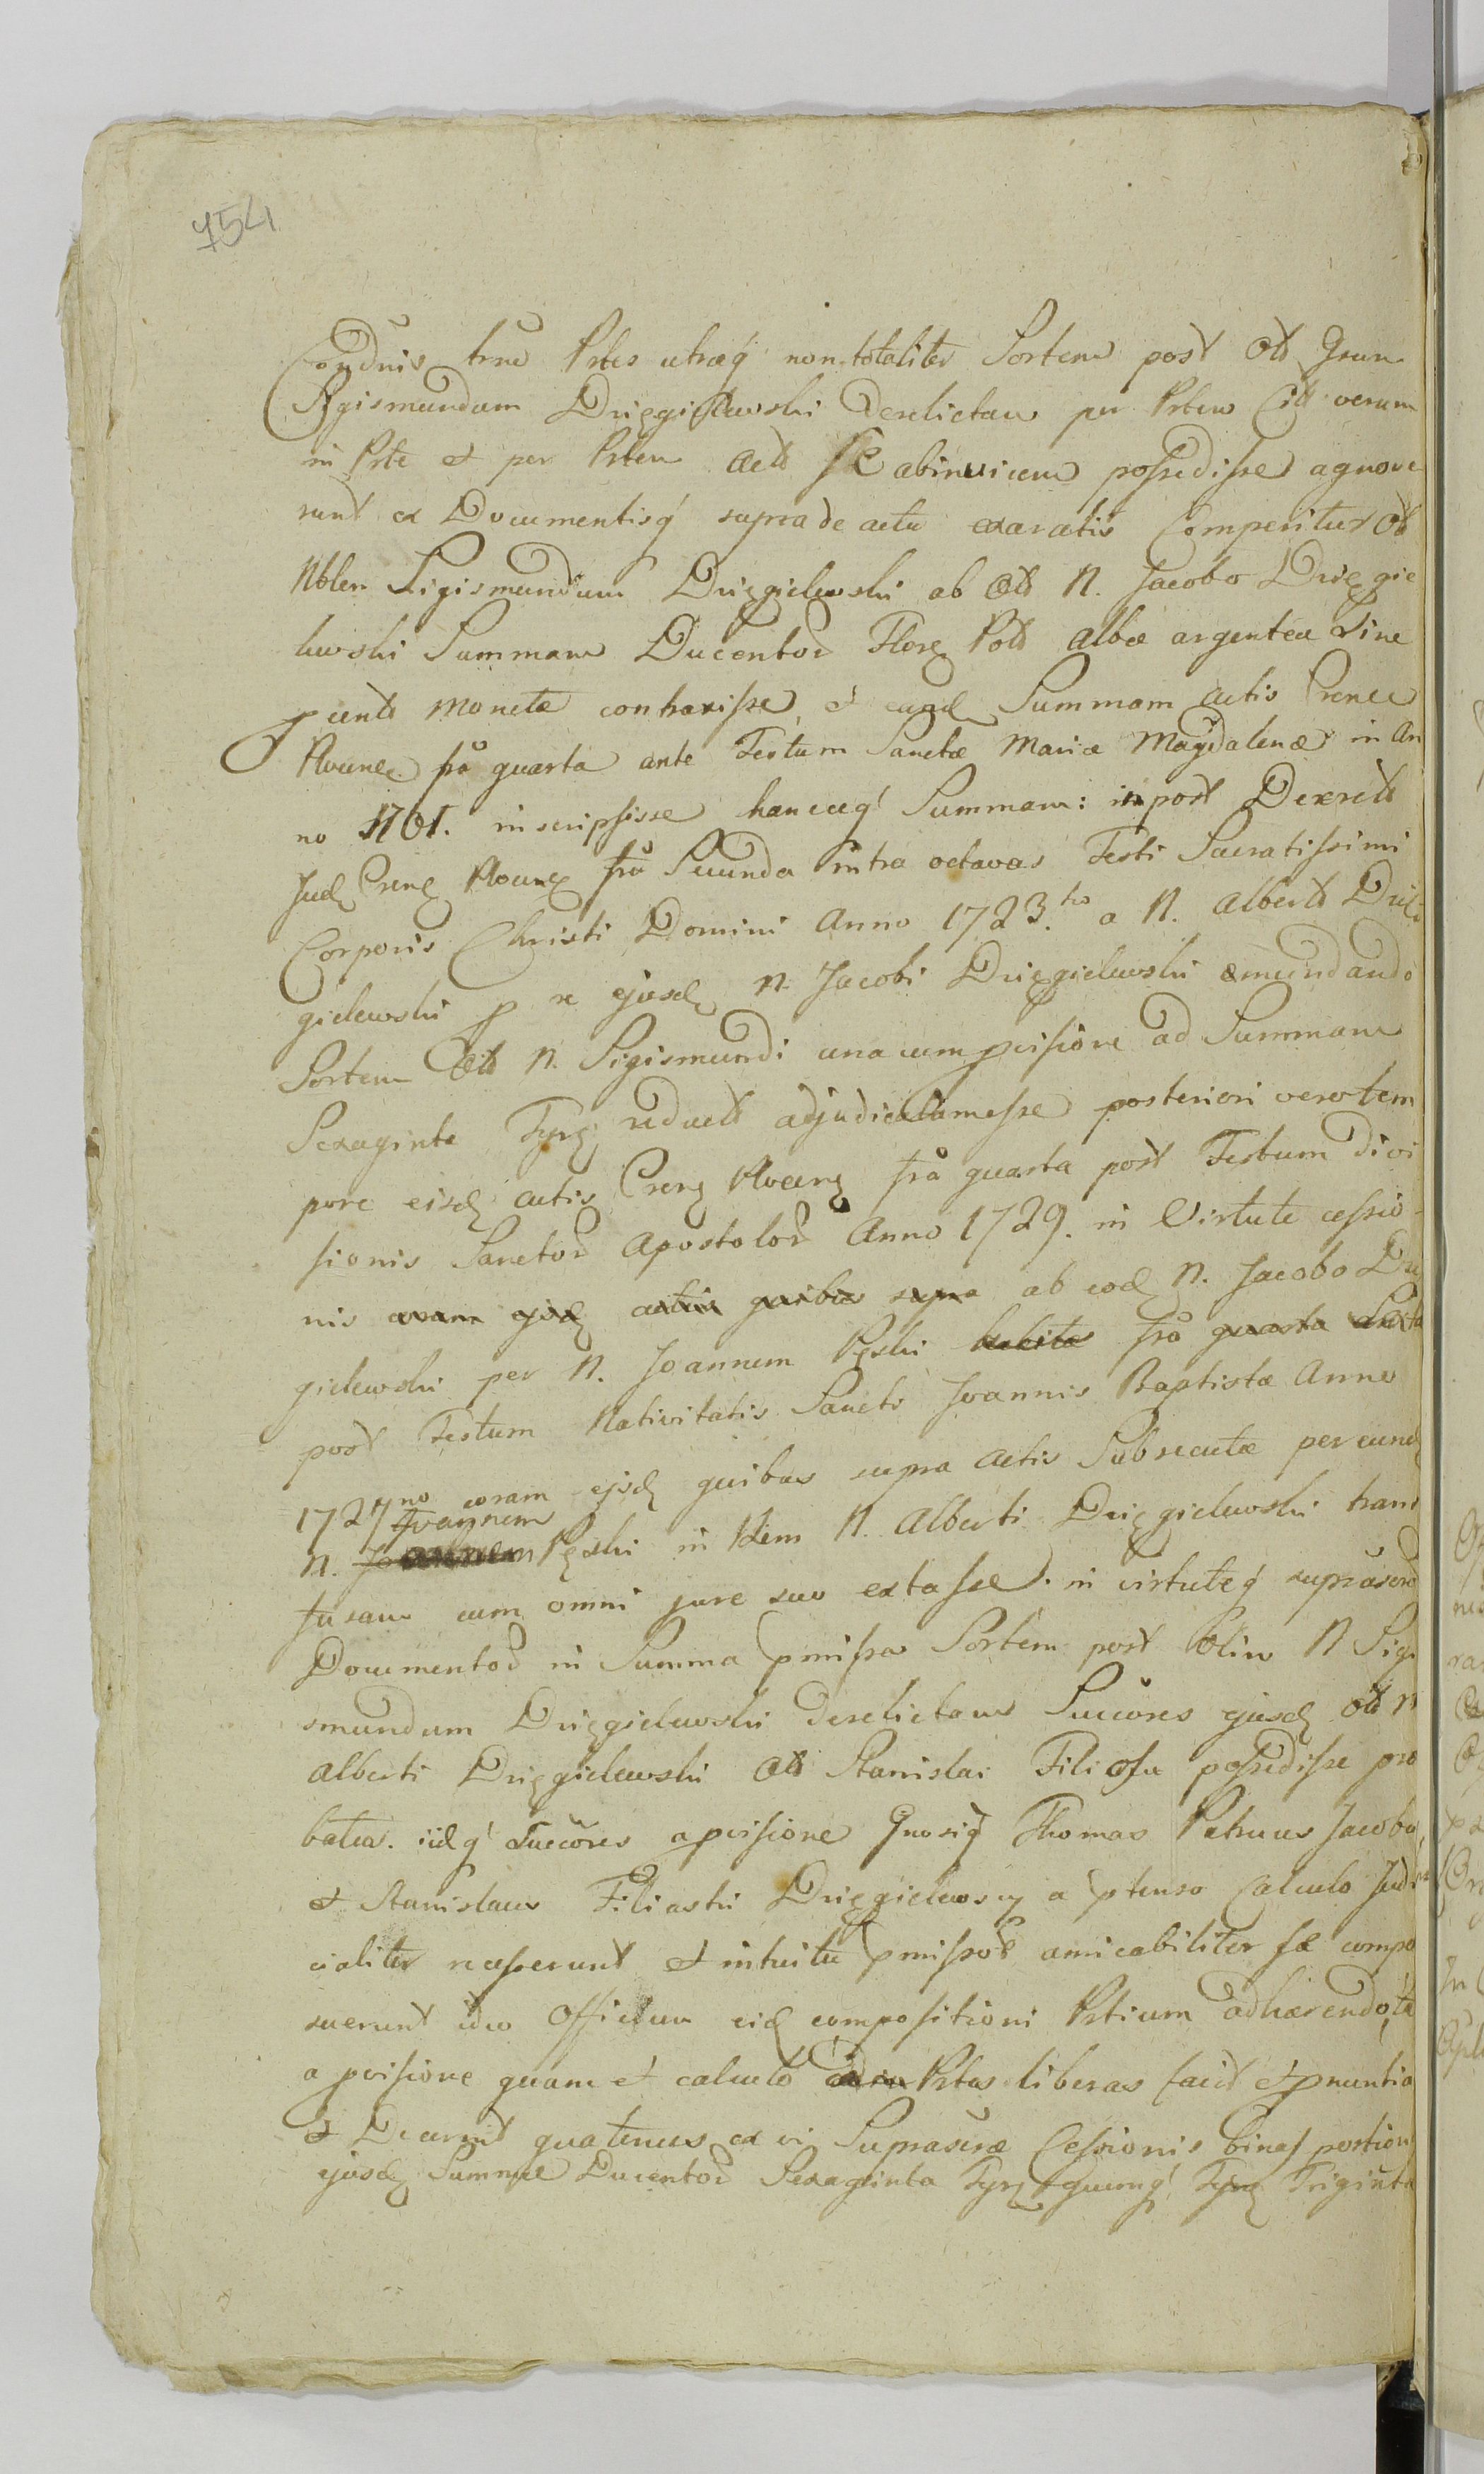 754
Condnis tme Prtes utraq non totaliter Sortem post Old Gsum
Sigismundum Dzięgielewski Derelictam per Prtem Citt verum
in Prte et per Prtem Actt se abinvicem possedisse agnove
runt ex Documentisq supra de actu exaratis Comperitur Old
Nblem Sigismundum Dzięgielewski ab Old N. Jacobo Dzięgie
lewski Summam Ducentor Flore Poll albæ argentea Sine
p centt monetæ contraxisse, et eand Summam actis Crense
Rvense fra quarta ante Festum Sanctæ Mariæ Magdalenæ in An
no 1701. inscripsisse hancuq Summam: in post Decrett
Judl Crens Rvens fra Secunda intra octavas Festi Sacratissimi
Corporis Christi Domini Anno 1723.tio a N. Albertt Dzię
gielewski p re ejusd N. Jacobi Dzięgielewski emundando
Sortem Old N. Sigismundi una cum pvisione ad Summam
Sexaginta Tynf reductt adjudicatam esse posteriori vero tem
pore eisd actis Crens Rvens fra quarta post Festum Divi
sionis Sanctor Apostolor Anno 1729. in Virtute cessio-
nis coram ejsd actis quibus supra ab eod N. Jacobo Dzię
gielewski per N. Joannem Pęski habitæ fra quarta Sexta
post Festum Nativitatis Sancti Joannis Baptistæ Anno
1727no coram ejsd quibus supra actis Subsecutæ per eund
Joannem
N. Joannem Pęski in Rem N. Alberti Dzięgielewski trans
fusam cum omni jure suo extasse. in virtuteq supraser
Documentor in Summa pmissa Sortem post olim N Sigi
smundum Dzięgielewski Derelictam Succores ejusd Old N
Alberti Dzięgielewski Old Stanislai Filiosq possedisse pro
batur. iidq Succores a pvisione Gnosiq Thomas Petrus Jacobus
et Stanislaus Filiastri Dzięgielewscy a ptenso Calculo Judi
cialiter recesserunt et intuitu pmissor amicabiliter se compo
suerunt ideo Officium eid compositioni Prtium adhærendo, ta
a pvisione quam et calculo Prtes liberas facit et pnuntia
et Decernit quatenus ex vi Suprascræ Cessionis binas portion
ejusd Summæ Ducentor Sexaginta Tynf quumq Tynf Triginta